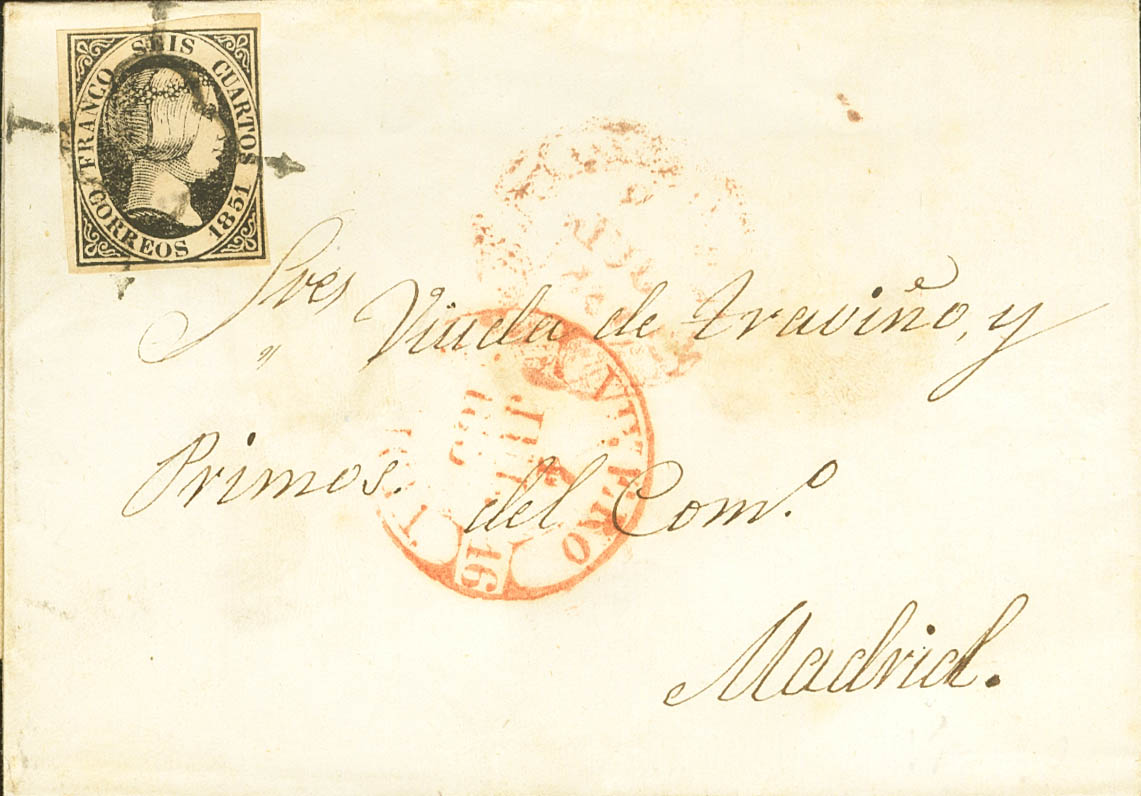 FRANCO SEIS CUARTOS
CORREOS 1851
Sres Viuda de traviño, y
Primos. del Com.º
Madrid.
16